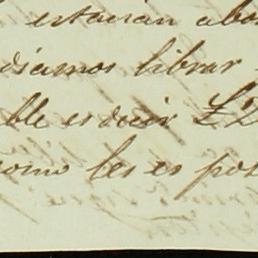 estarian abo
diamos librar
ble es decir £2
como les es pos